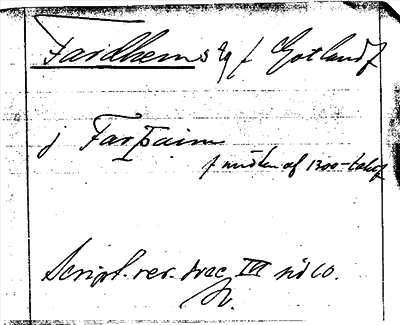 Fardhems sn Gotland
i Farþaim
midten af 1300-talet
Script. rer. svec. III sid 60.